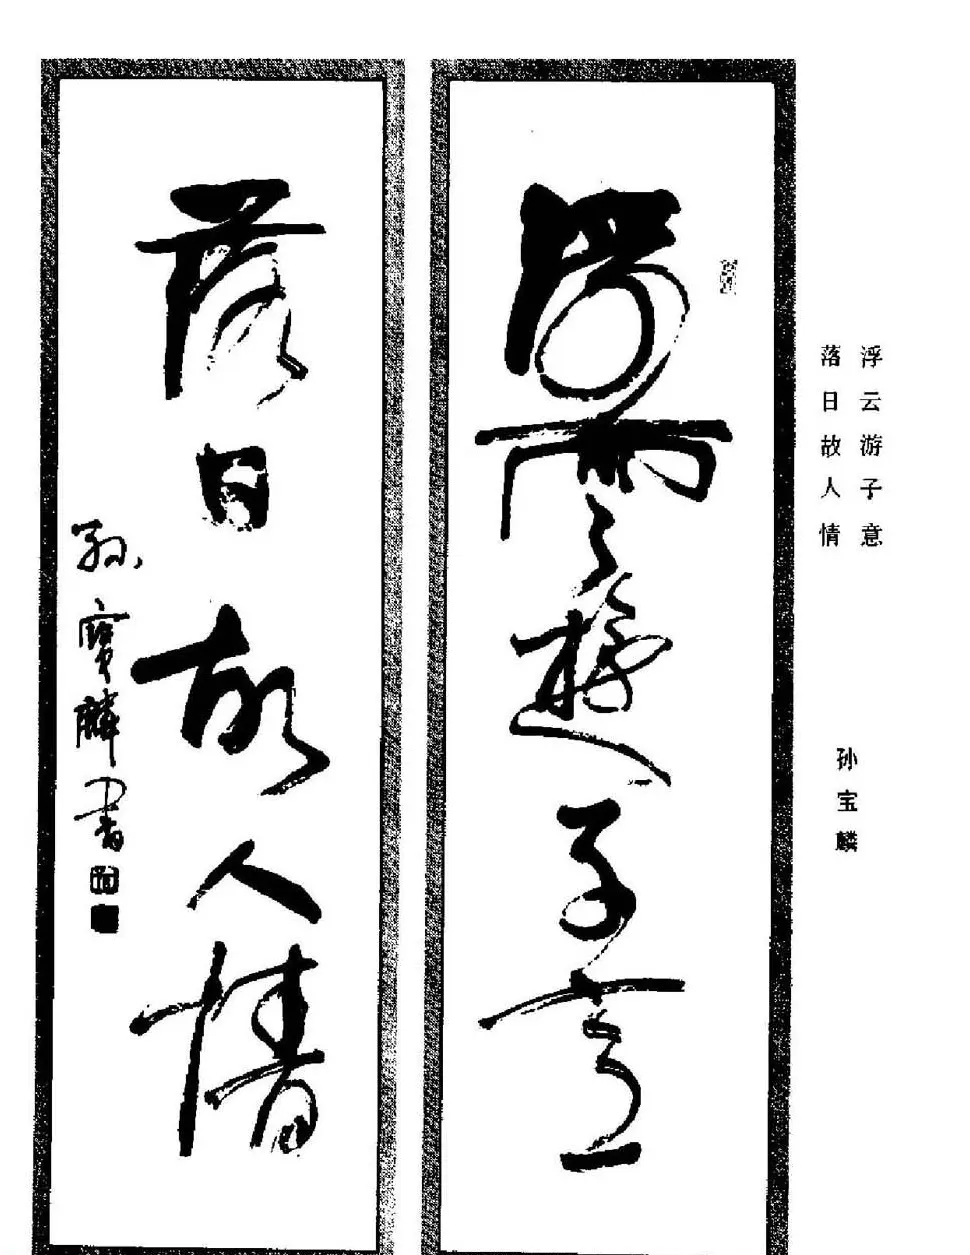 浮云游子意
落日故人情
孙宝麟
浮雲遊子意
落日故人情
孫寶麟書